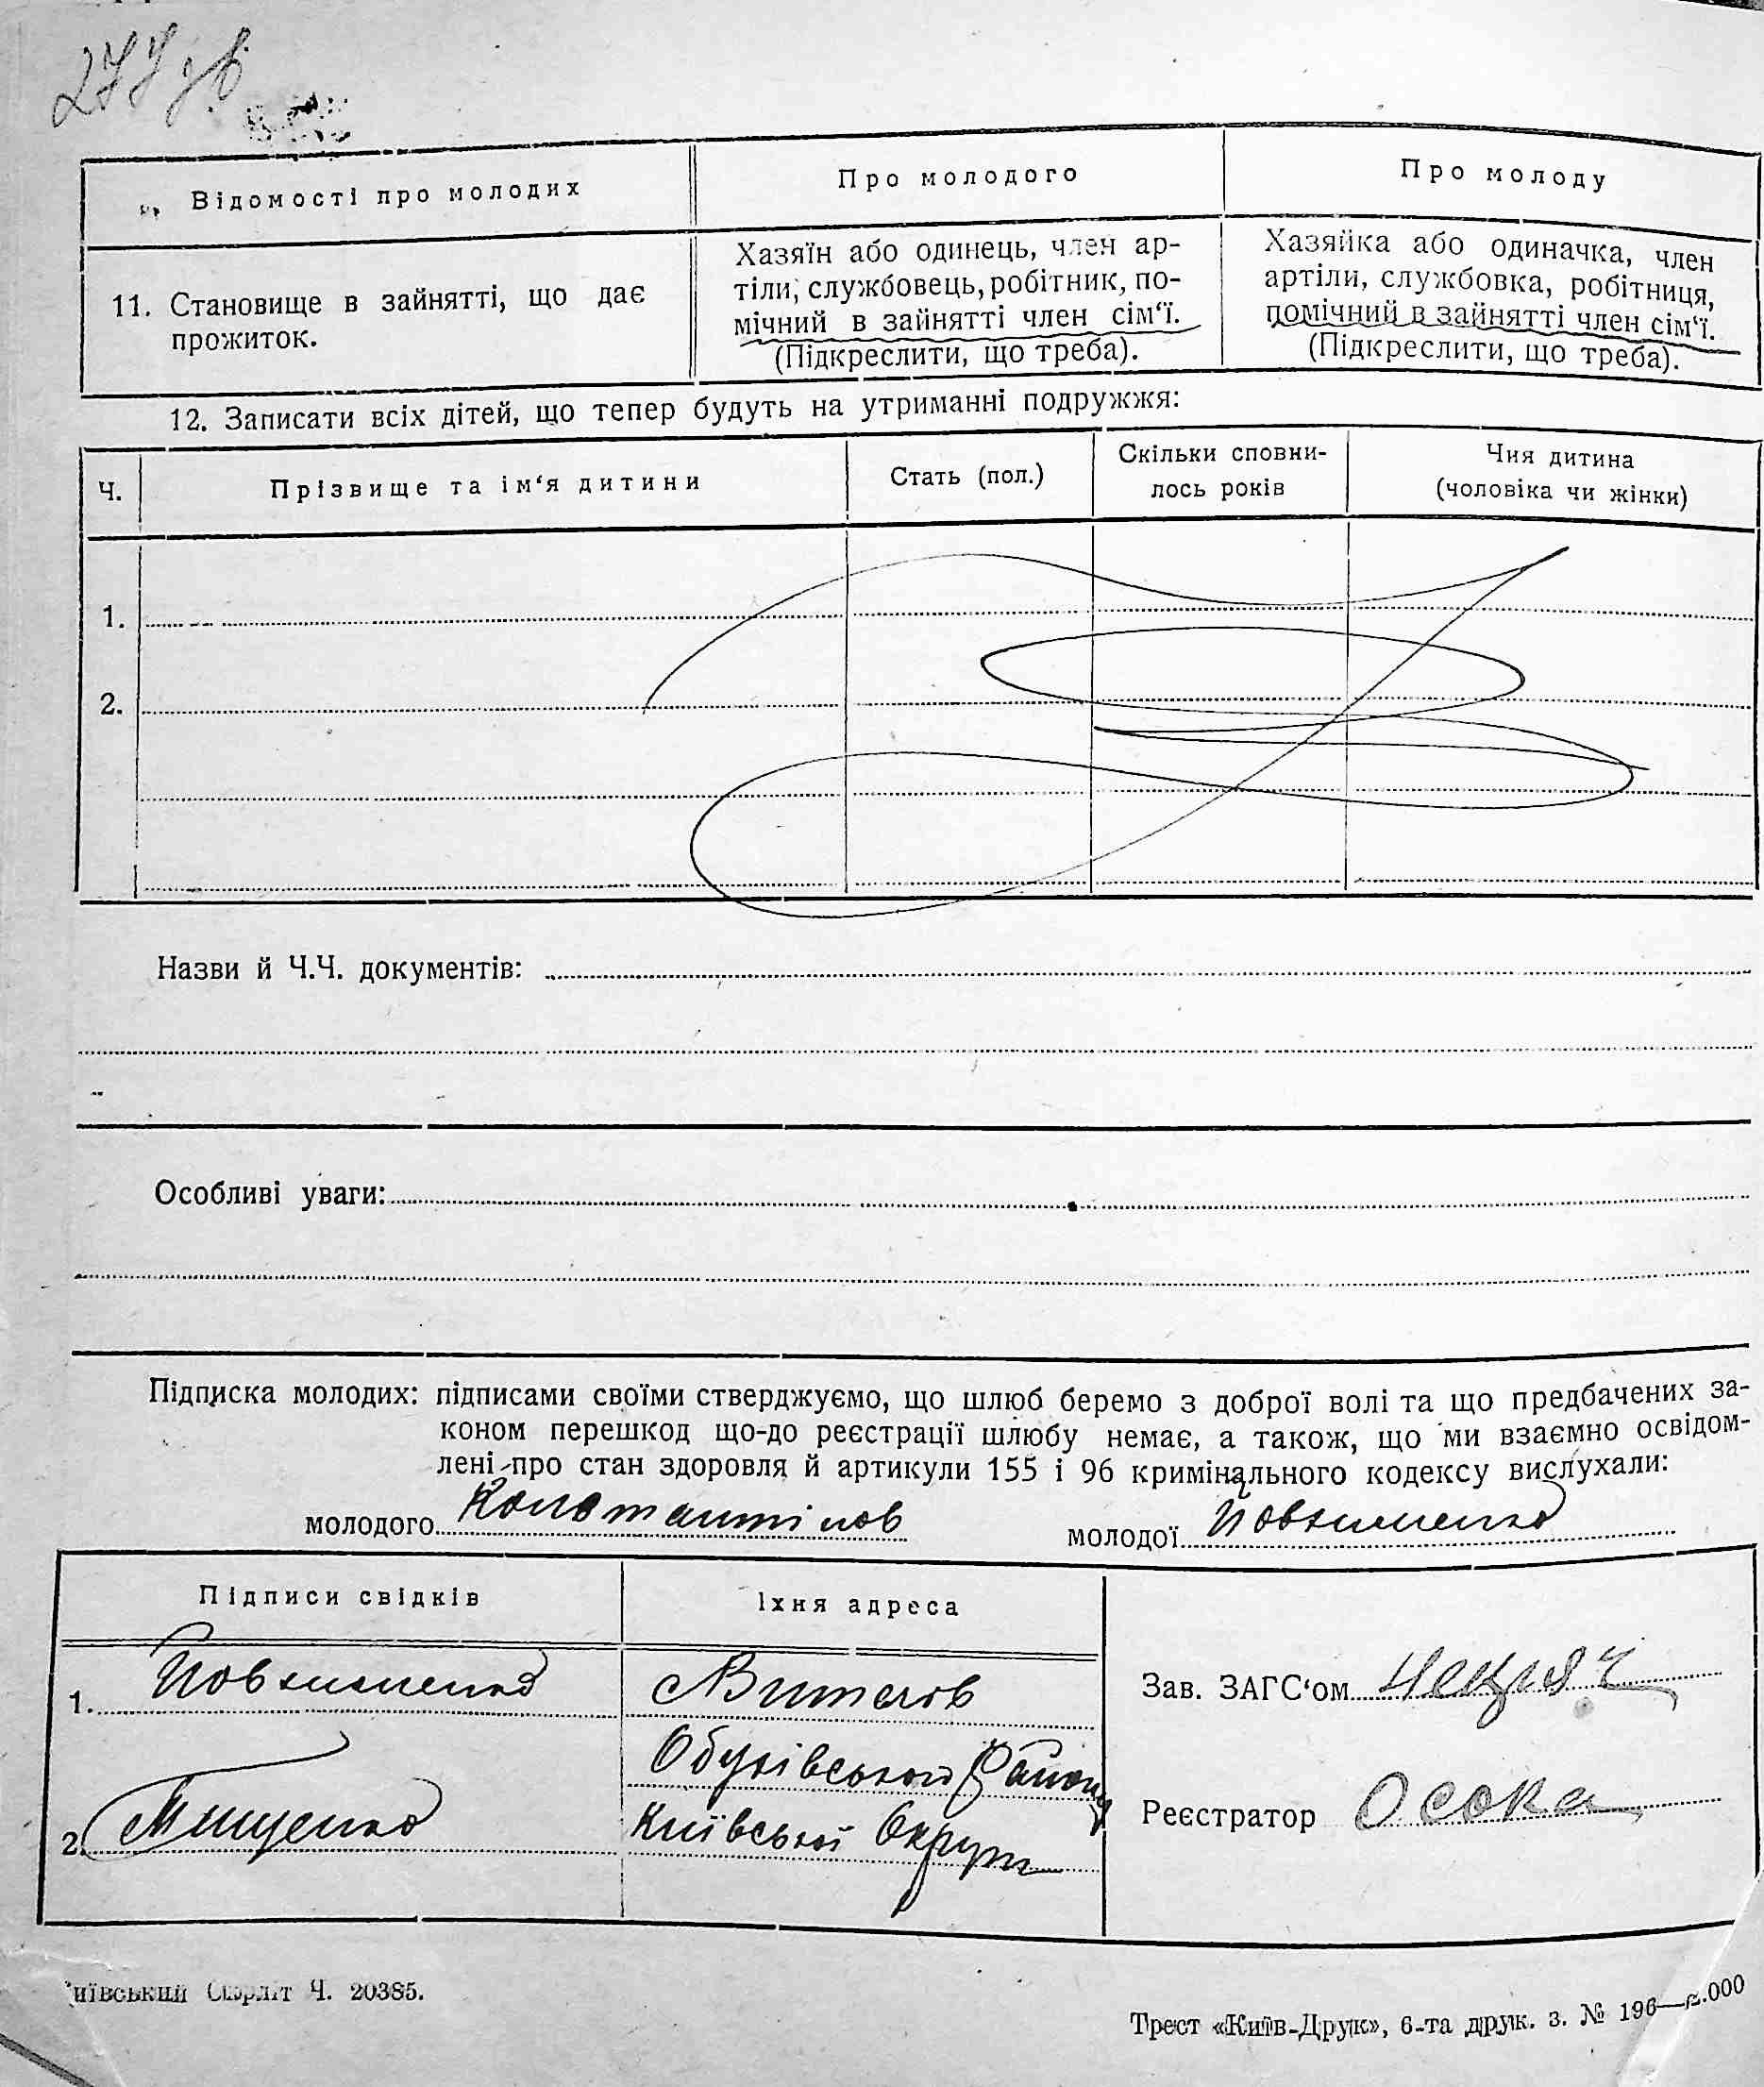 277 зв
Відомості про молодих
Про молодого
Про молоду
11. Становище в зайнятті, що дає
прожиток.
Хазяїн або одинець, член ар-
тіли, службовець, робітник, по-
мічний в зайнятті член сім‘ї.
(Підкреслити, що треба).
Хазяйка або одиначка, член
артіли, службовка, робітниця,
помічний в зайнятті член сім‘ї.
(Підкреслити, що треба).
12. Записати всіх дітей, що тепер будуть на утриманні подружжя:
Ч.
Прізвище та ім‘я дитини
Стать (пол.)
Скільки сповни-
лось років
Чия дитина
(чоловіка чи жінки)
1.
2.
Назви й Ч.Ч. документів:
Особливі уваги:
Підписка молодих: підписами своїми стверджуємо, що шлюб беремо з доброї волі та що предбачених за-
коном перешкод що-до реєстрації шлюбу немає, а також, що ми взаємно освідом-
лені про стан здоровля й артикули 155 і 96 кримінального кодексу вислухали:
молодого Константінов
молодої
Підписи свідків
Їхня адреса
1.
Витачів
Зав. ЗАГС‘ом
Обухівського Району
2. Мищенко
Київської Округи
Реєстратор Осока
Київський Окрліт Ч. 20385.
Трест «Київ-Друк», 6-та друк. з. № 196